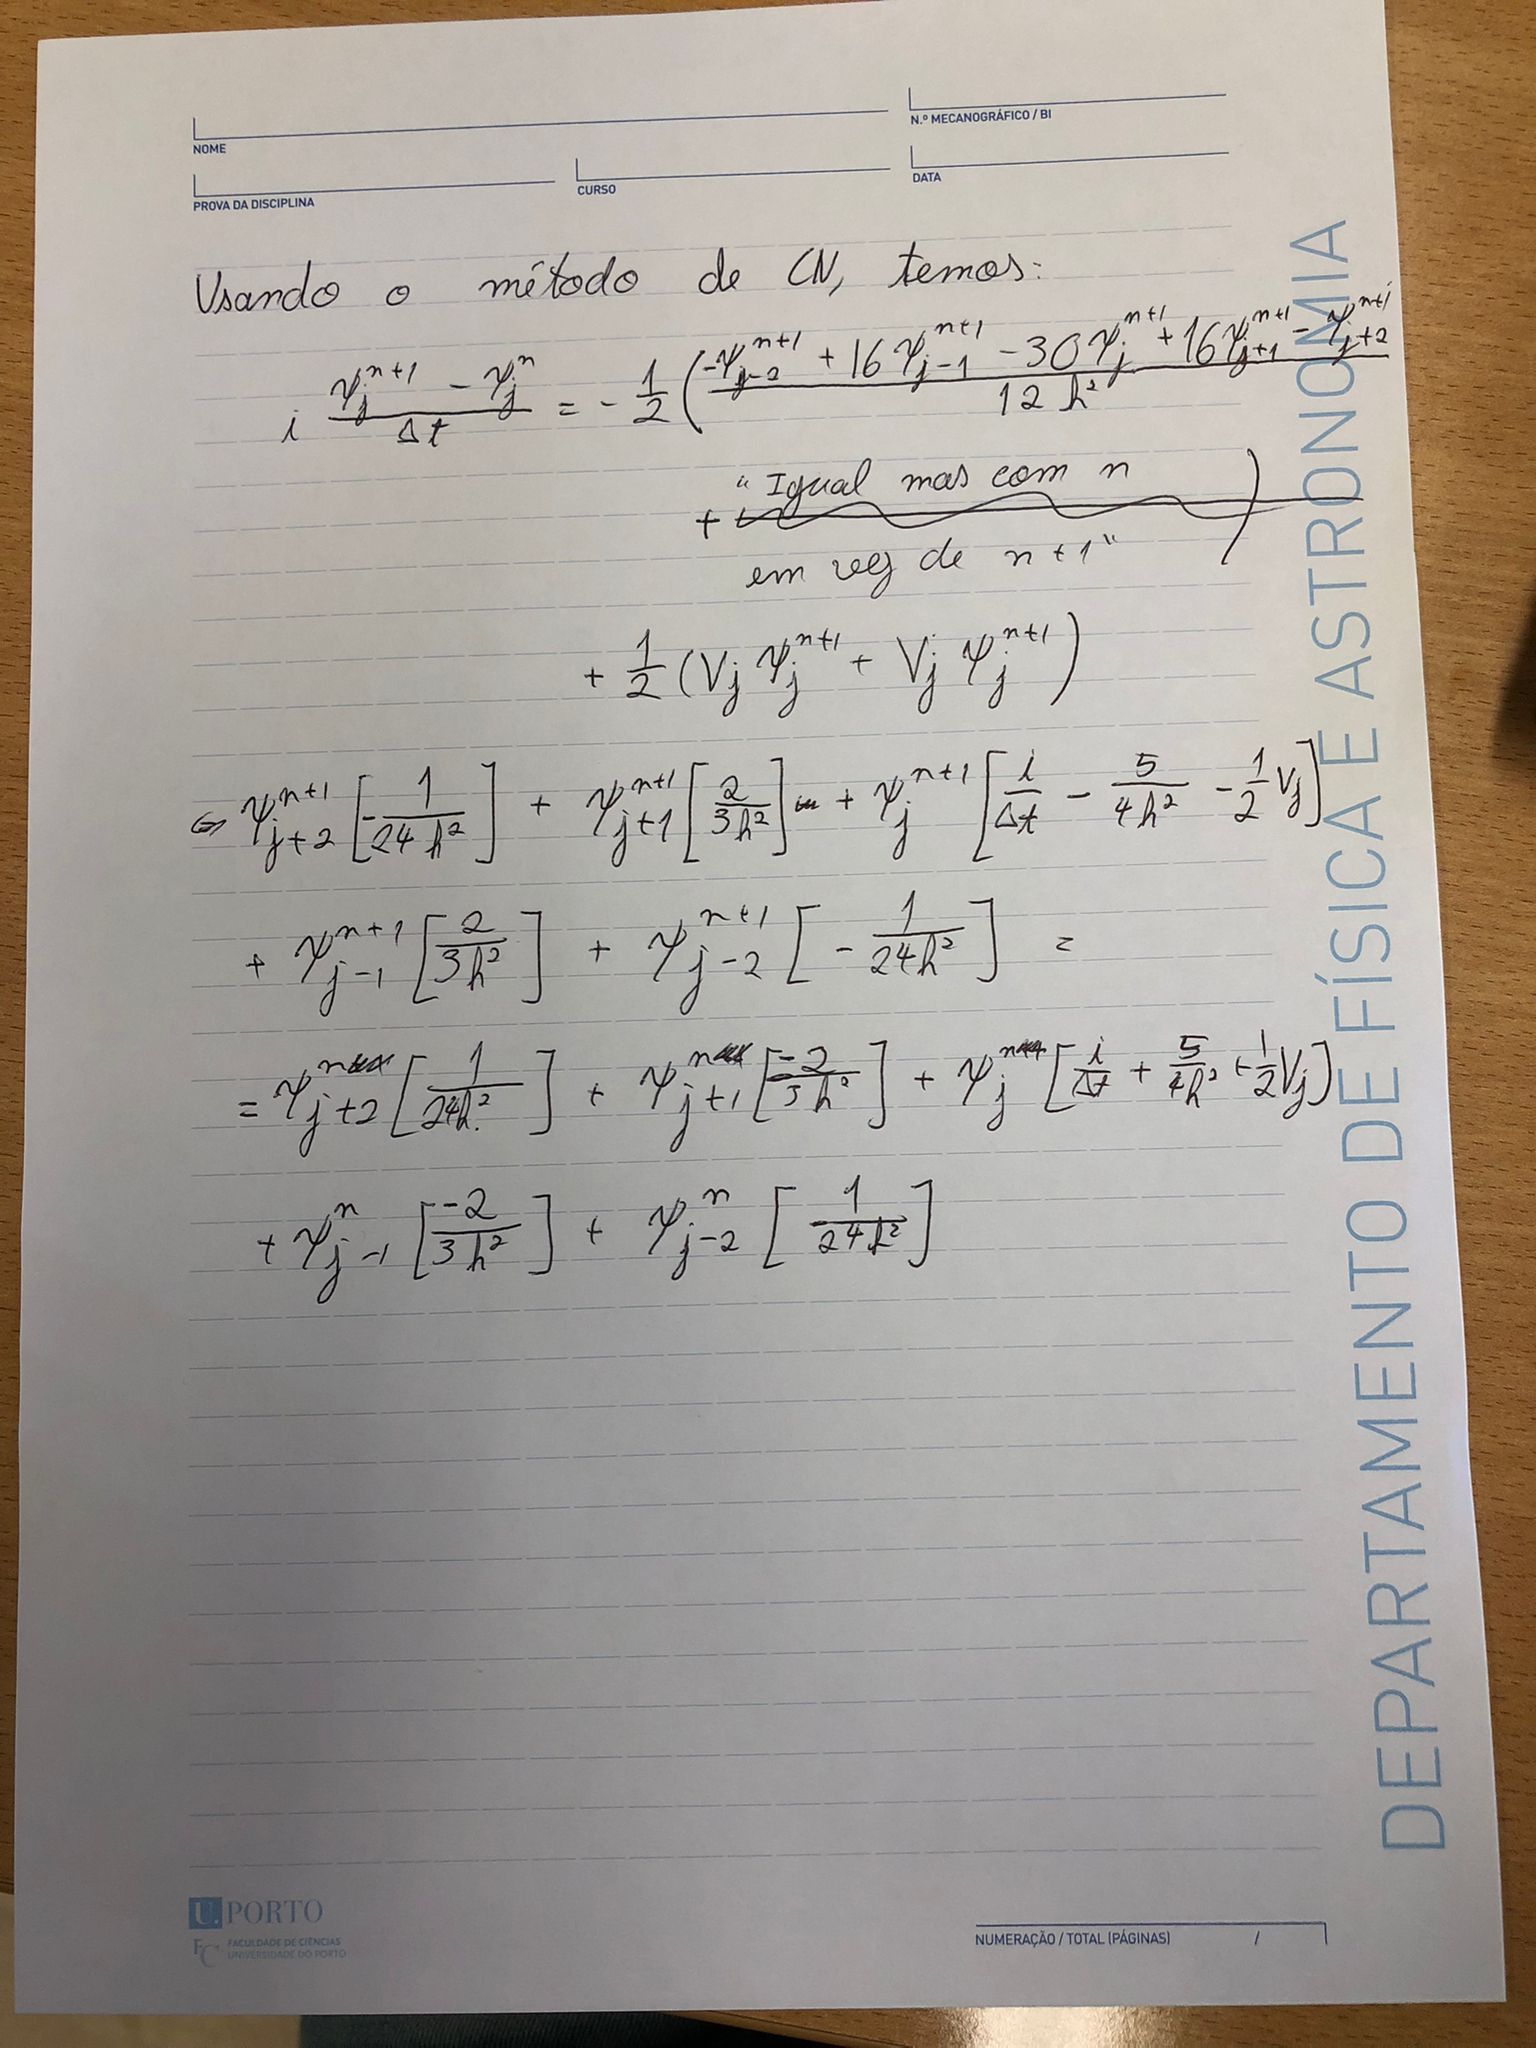 NOME
N.º MECANOGRÁFICO / BI
PROVA DA DISCIPLINA
CURSO
DATA
Usando o método de CN, temos:
i (ψ_j^{n+1} - ψ_j^n)/Δt = -1/2 ( (-ψ_{j-2}^{n+1} + 16ψ_{j-1}^{n+1} - 30ψ_j^{n+1} + 16ψ_{j+1}^{n+1} - ψ_{j+2}^{n+1})/(12 h²)
+ "Igual mas com n
em vez de n+1" )
+ 1/2 (V_j ψ_j^{n+1} + V_j ψ_j^{n+1})
⇔ ψ_{j+2}^{n+1} [-1/(24 h²)] + ψ_{j+1}^{n+1} [2/(3h²)] + ψ_j^{n+1} [i/Δt - 5/(4h²) - 1/2 V_j]
+ ψ_{j-1}^{n+1} [2/(3h²)] + ψ_{j-2}^{n+1} [-1/(24h²)] =
= ψ_{j+2}^n [1/(24h²)] + ψ_{j+1}^n [-2/(3h²)] + ψ_j^n [i/Δt + 5/(4h²) + 1/2 V_j]
+ ψ_{j-1}^n [-2/(3h²)] + ψ_{j-2}^n [1/(24h²)]
DEPARTAMENTO DE FÍSICA E ASTRONOMIA
U.PORTO
FC FACULDADE DE CIÊNCIAS
UNIVERSIDADE DO PORTO
NUMERAÇÃO / TOTAL (PÁGINAS) /